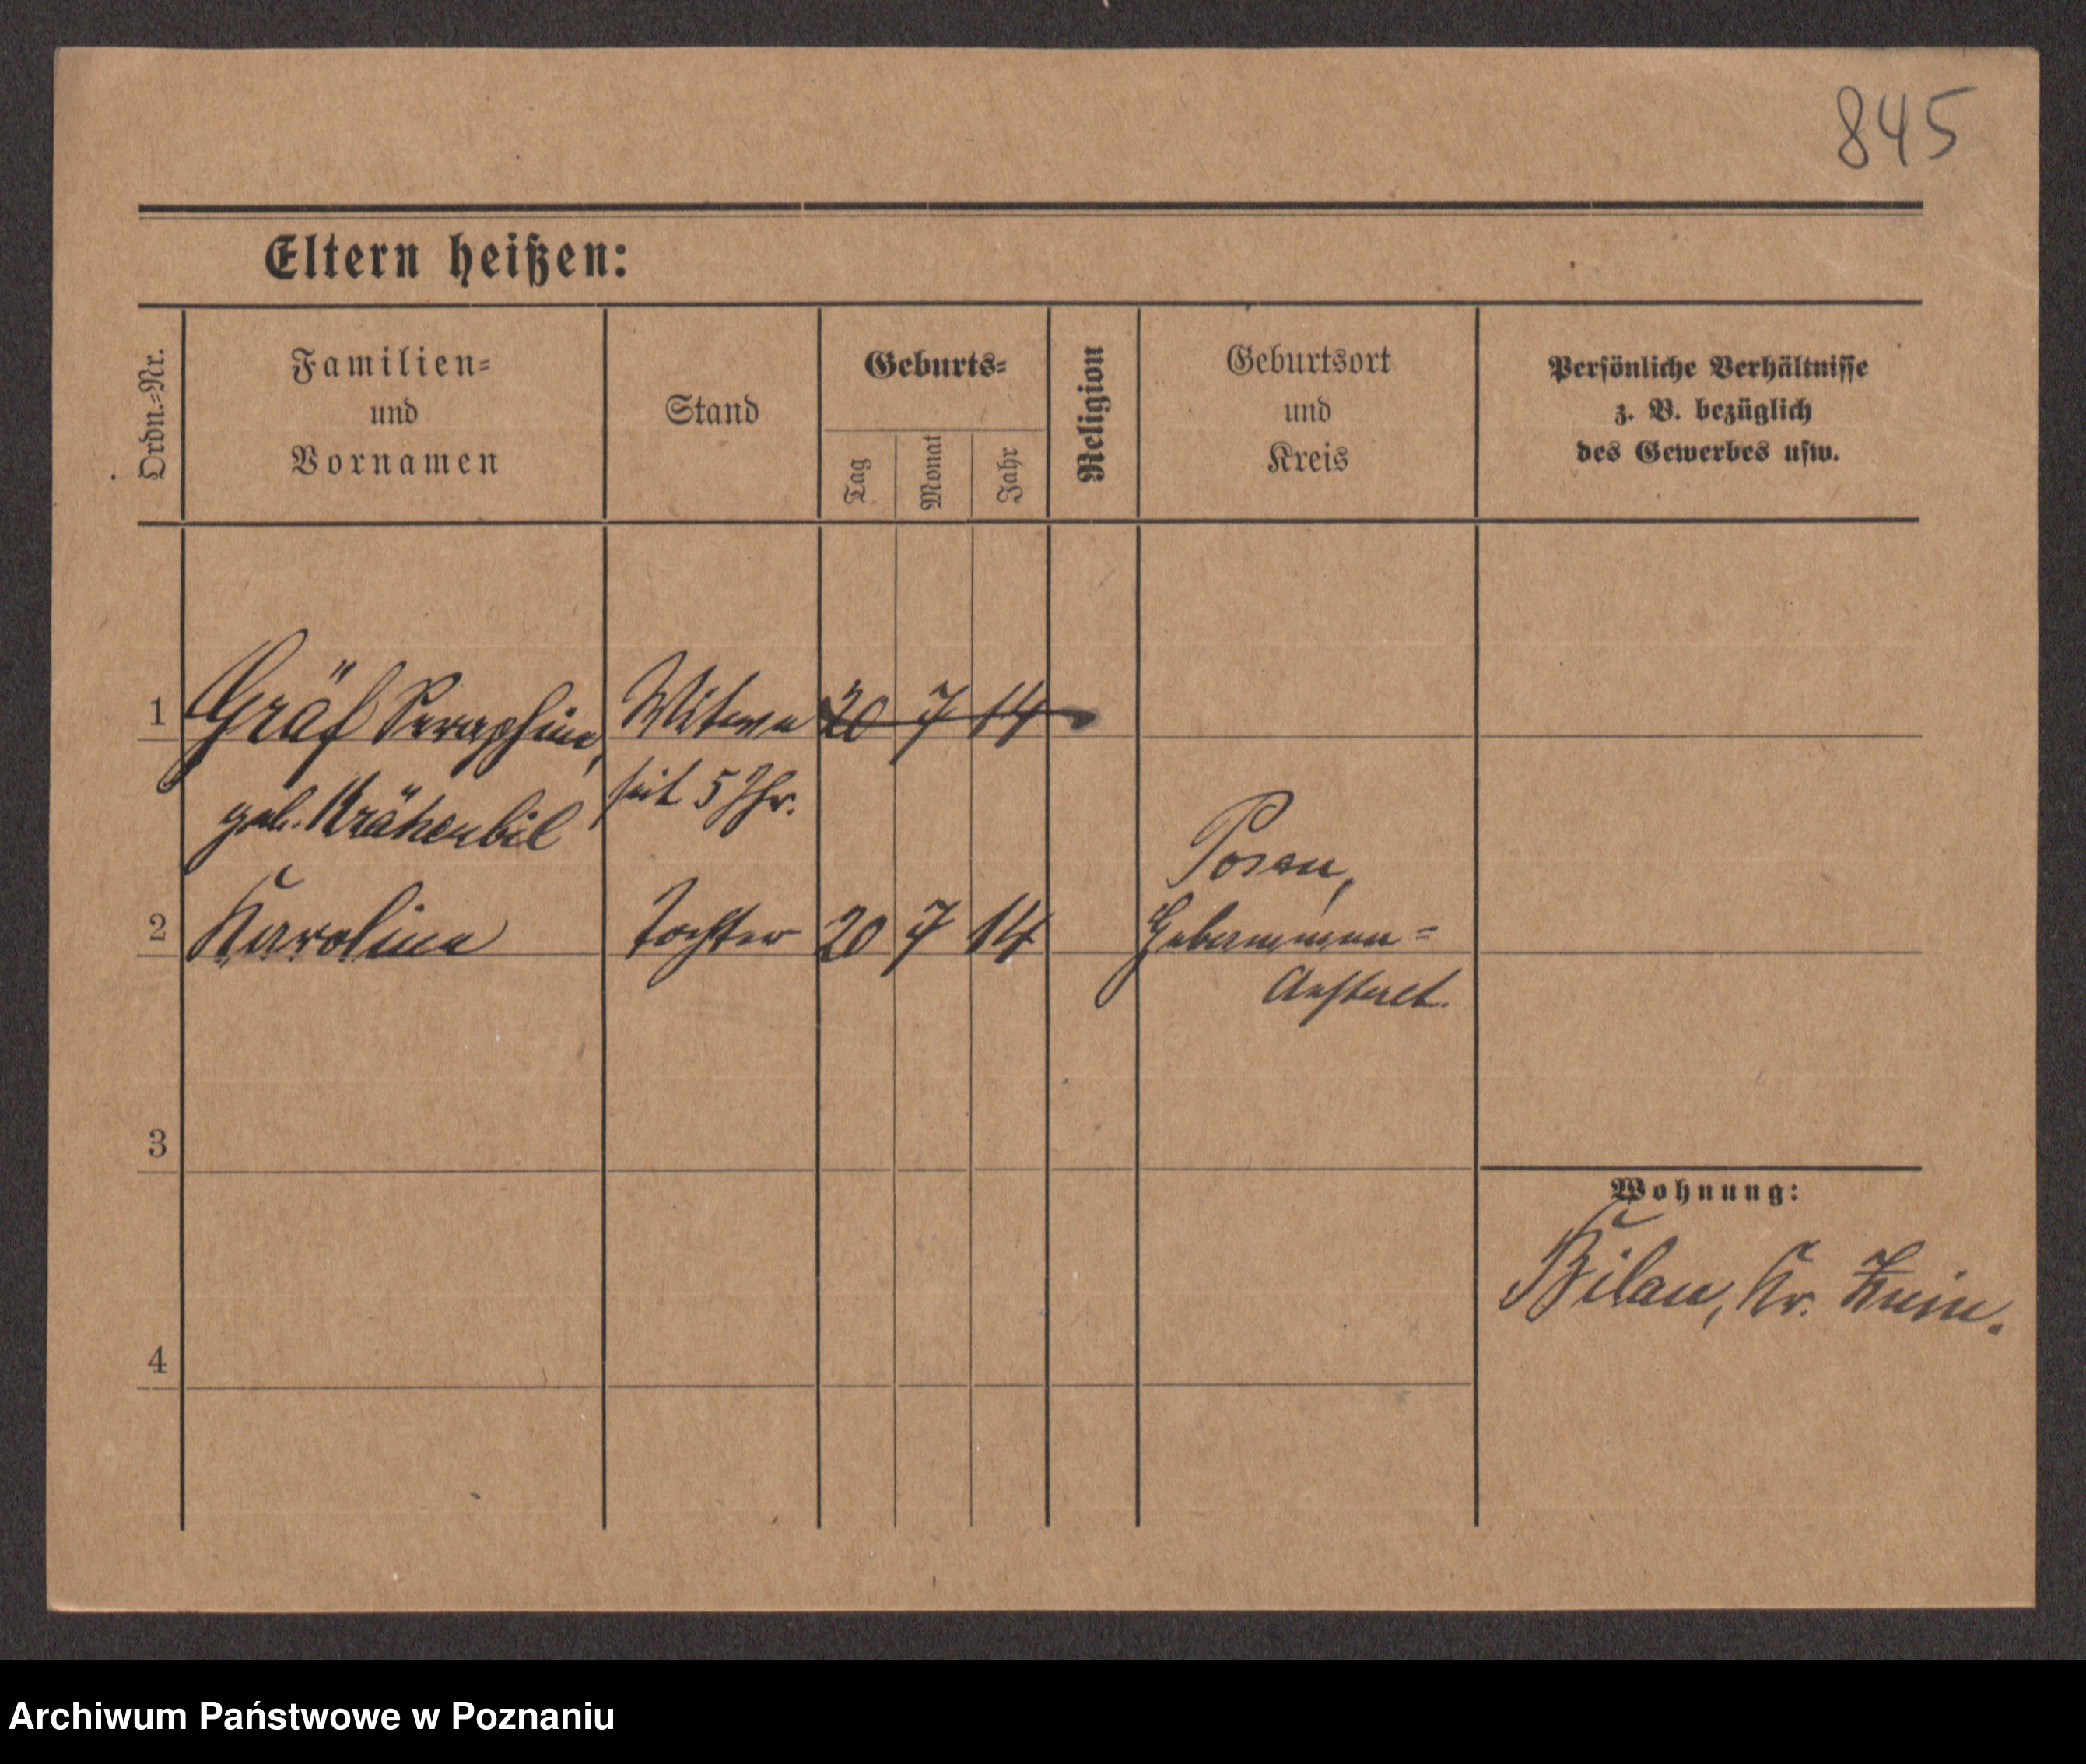 845
Eltern heißen:
Ordn.=Nr.
Familien=
und
Vornamen
Stand
Geburts=
Tag
Monat
Jahr
Religion
Geburtsort
und
Kreis
Persönliche Verhältnisse
z. B. bezüglich
des Gewerbes usw.
1 Gräf Seraphine, Witwe 20 7 14
geb. Krähenbil seit 5 Jhr.
Posen,
2 Karoline Tochter 20 7 14 Hebammen=
Anstalt.
3
Wohnung:
Bilau, Kr. Znin.
4
Archiwum Państwowe w Poznaniu